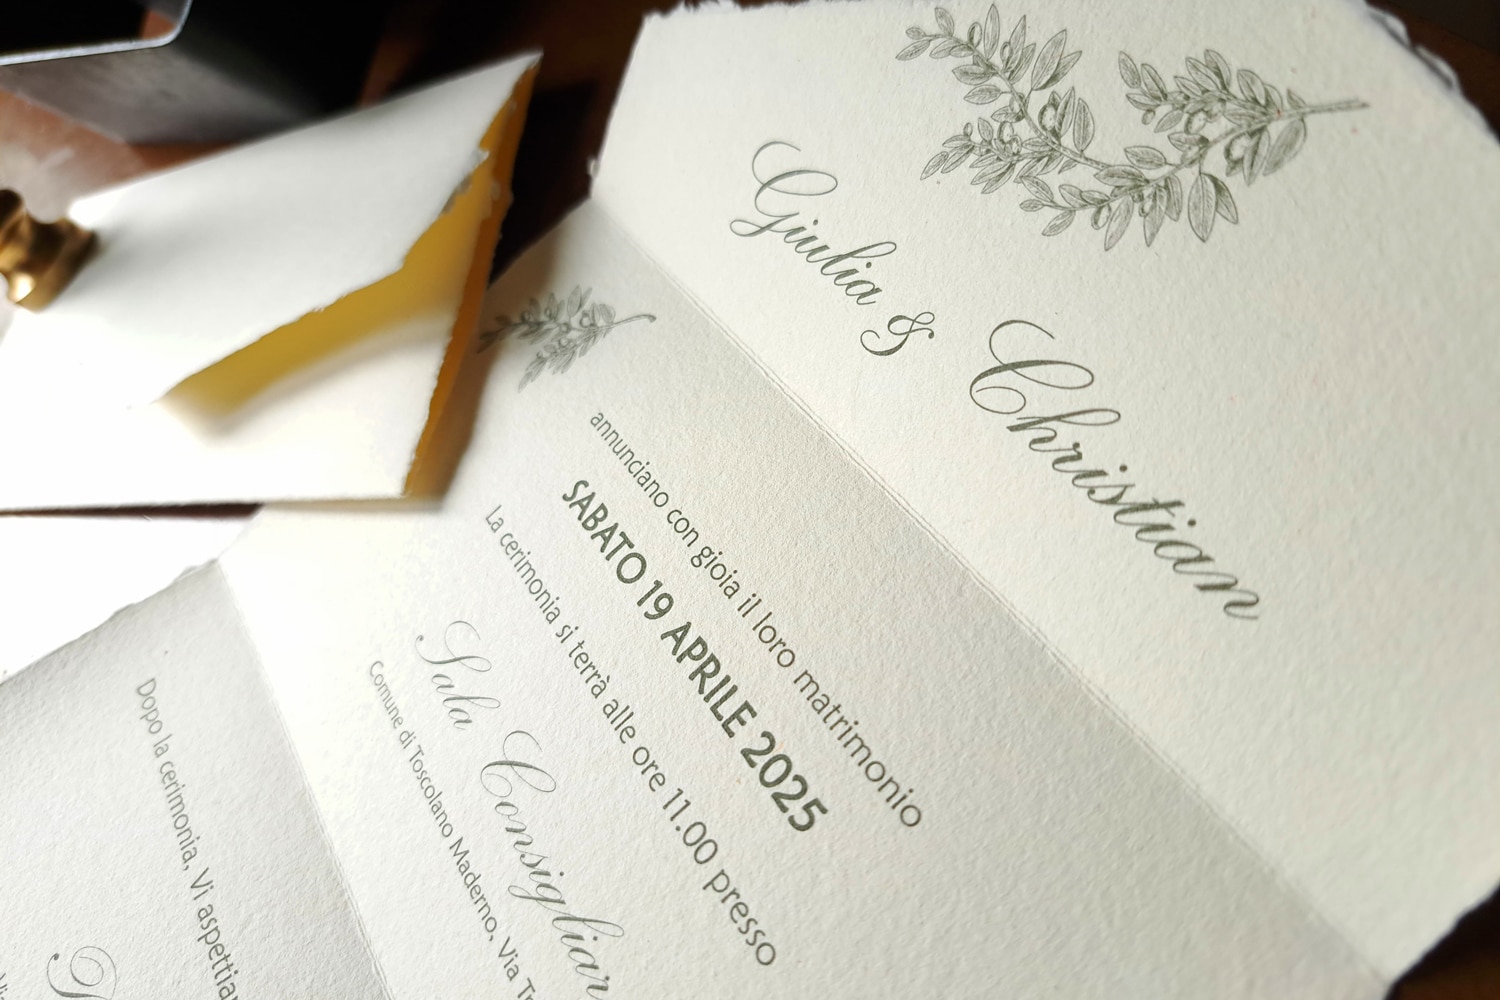 Giulia & Christian
annunciano con gioia il loro matrimonio
SABATO 19 APRILE 2025
La cerimonia si terrà alle ore 11.00 presso
Sala Consiliar
Comune di Toscolano Maderno, Via
Dopo la cerimonia, Vi